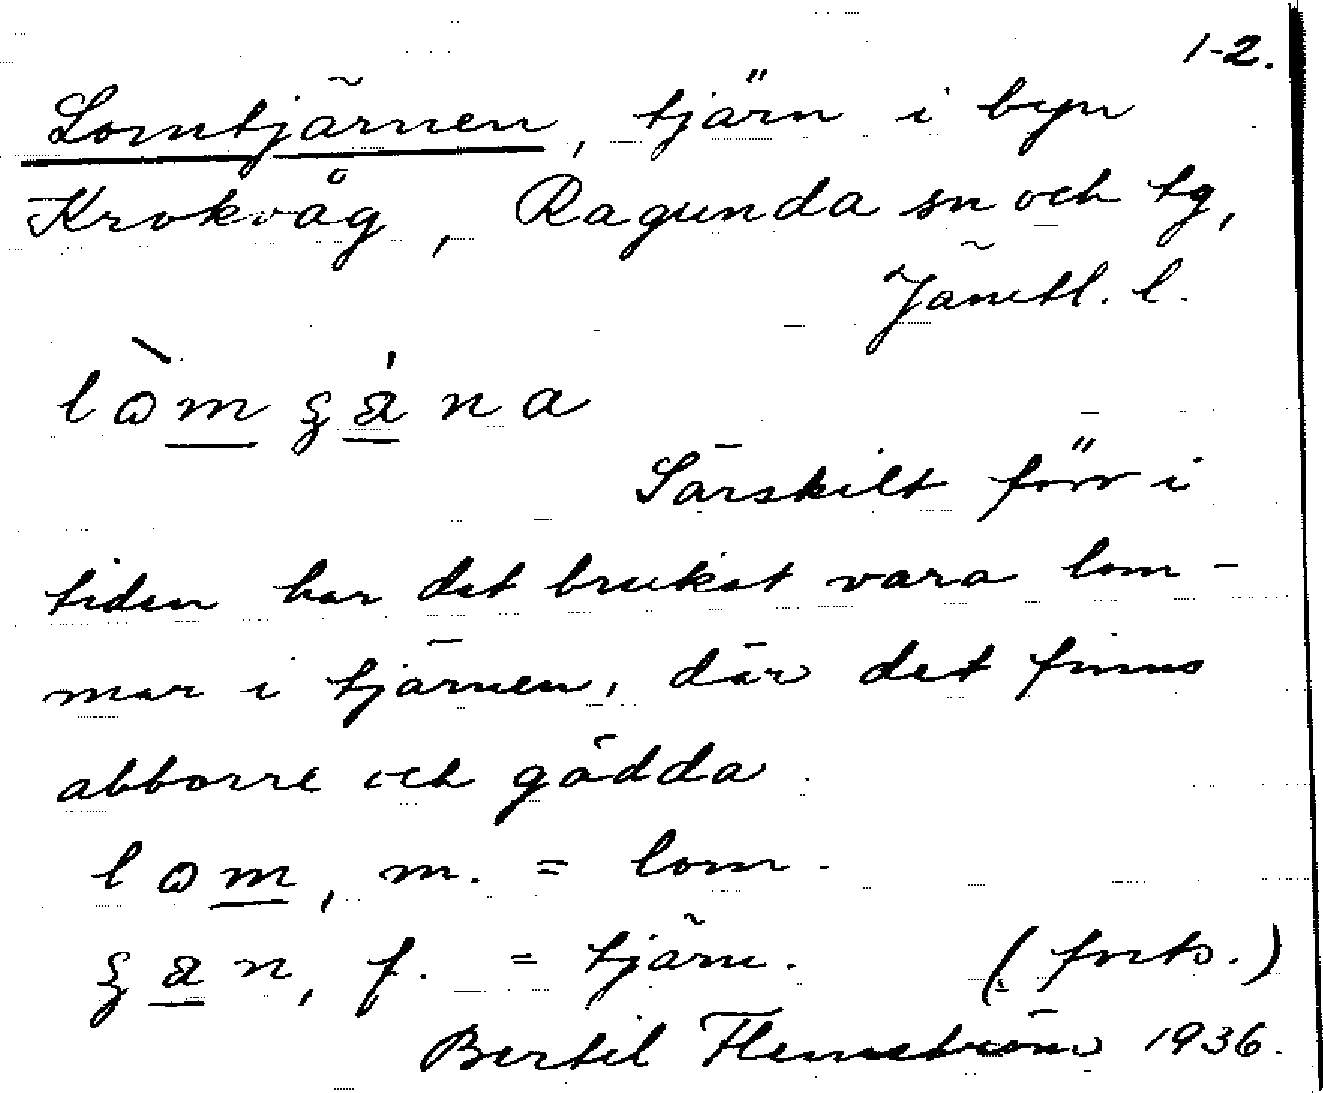 1-2.
Lomtjärnen, tjärn i byn
Krokvåg, Ragunda sn och tg,
Jämtl. l.
Särskilt förr i
tiden har det brukat vara lom-
mar i tjärnen, där det finns
abborre och gädda.
m. = lom.
f. = tjärn. (forts.)
Bertil Flemström 1936.